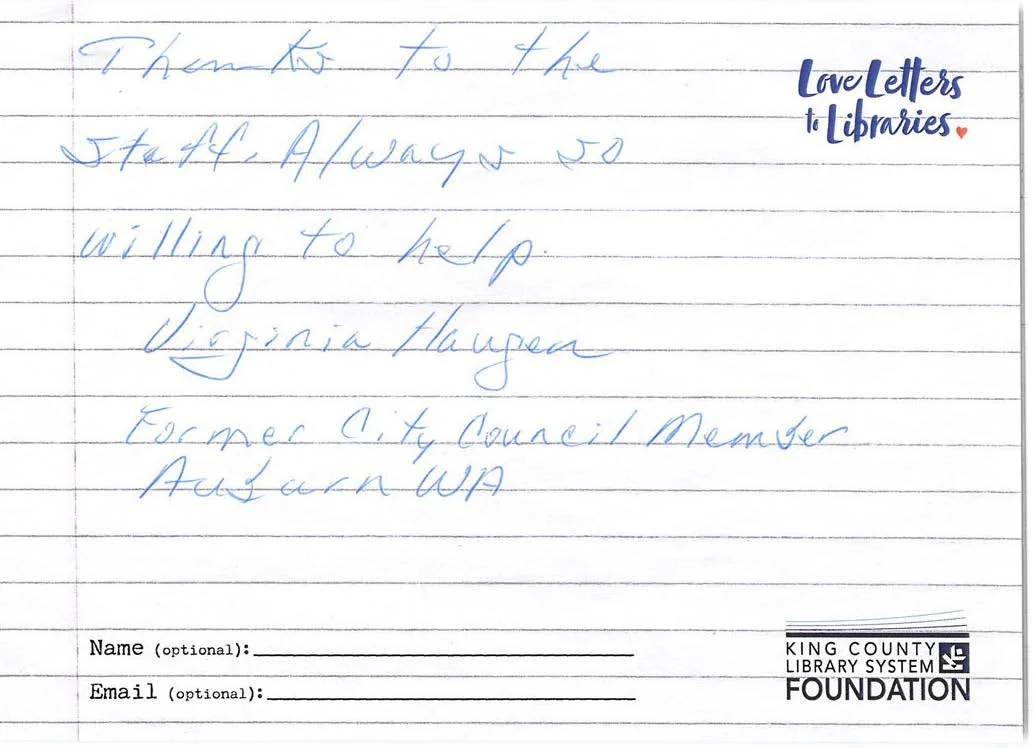 Thanks to the
staff. Always so
willing to help.
Virginia Haugen
Former City Council Member
Auburn WA
Love Letters
to Libraries.
Name (optional):
Email (optional):
KING COUNTY
LIBRARY SYSTEM
FOUNDATION